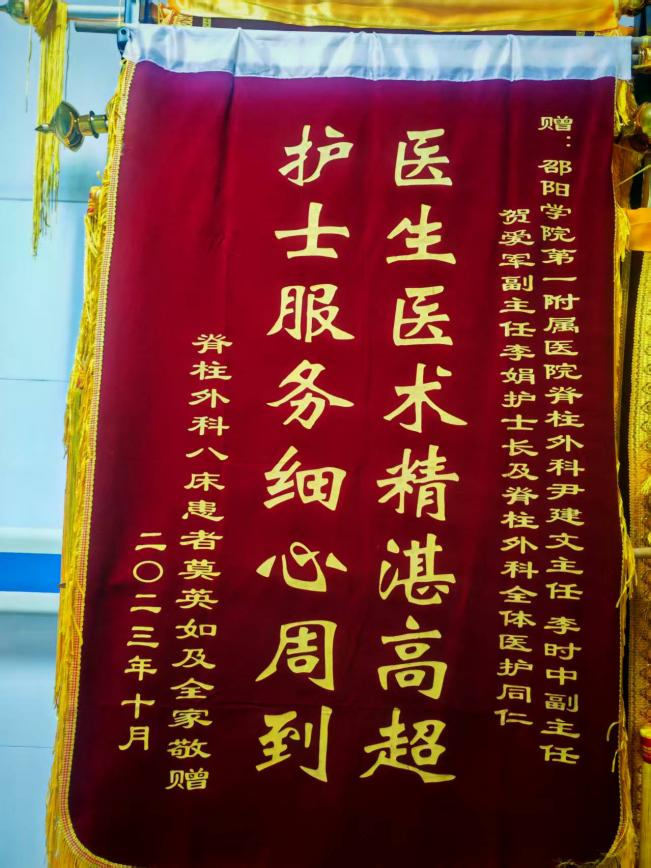 赠：邵阳学院第一附属医院脊柱外科尹建文主任 李时中副主任
贺爱军副主任李娟护士长及脊柱外科全体医护同仁
医生医术精湛高超
护士服务细心周到
脊柱外科八床患者莫英如及全家敬赠
二〇二三年十月